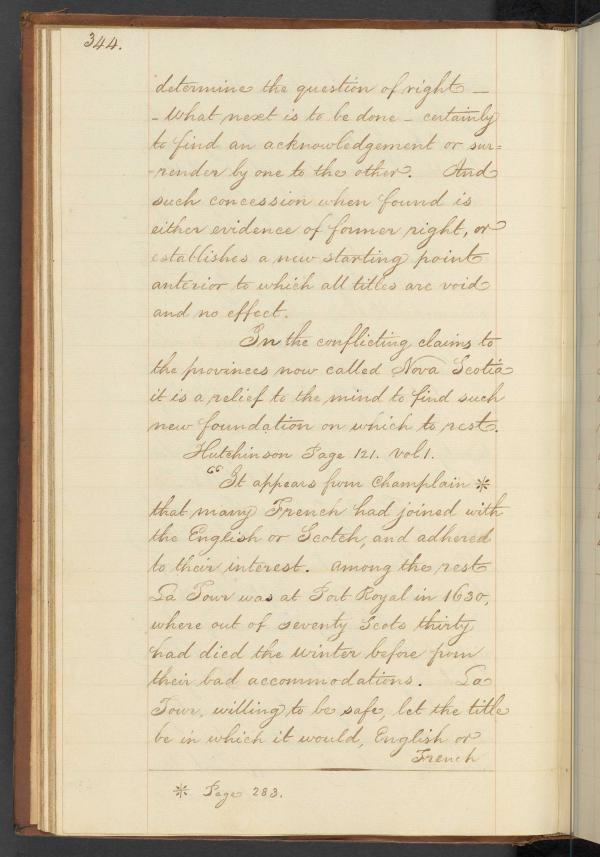 344.
determine the question of right —
- What next is to be done - certainly
to find an acknowledgement or sur=
-render by one to the other. And
such concession when found is
either evidence of former right, or
establishes a new starting point
anterior to which all titles are void
and no effect.
In the conflicting claims to
the provinces now called Nova Scotia
it is a relief to the mind to find such
new foundation on which to rest.
Hutchinson Page 121. vol 1.
“It appears from Champlain *
that many French had joined with
the English or Scotch, and adhered
to their interest. among the rest
La Tour was at Port Royal in 1630,
where out of seventy Scots thirty
had died the winter before from
their bad accommodations. La
Tour, willing to be safe, let the title
be in which it would, English or
French
* Page 283.